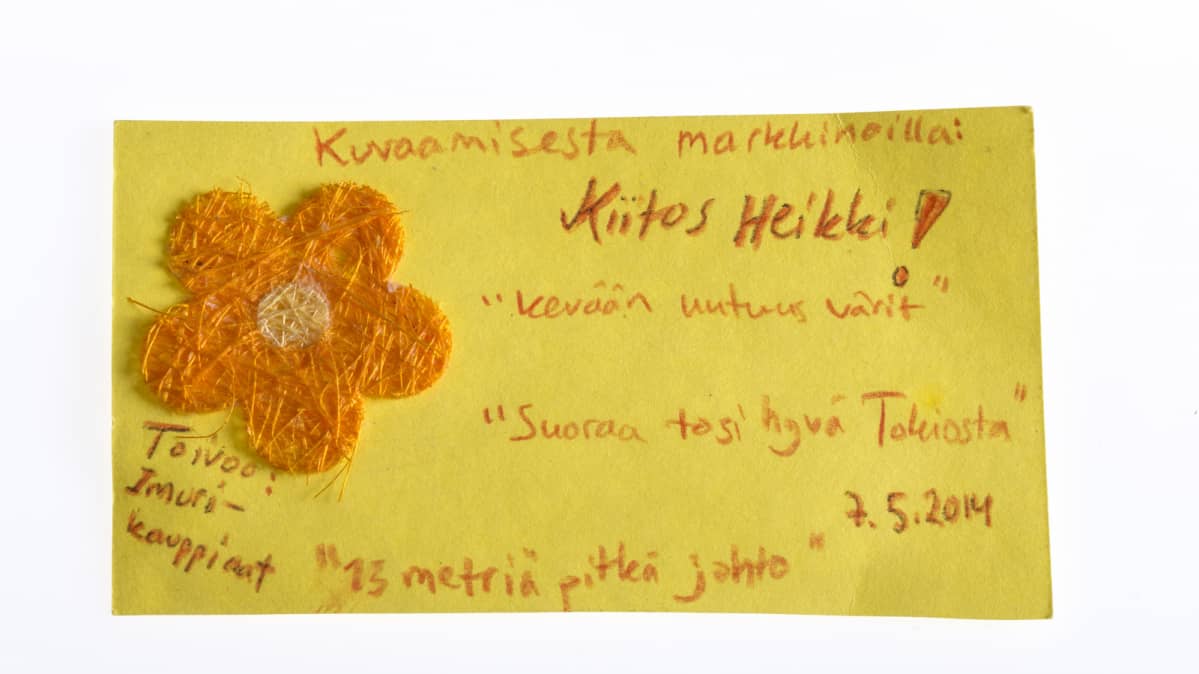 Kuvaamisesta markkinoilla:
Kiitos Heikki!
"kevään uutuus värit"
"Suoraa tosi hyvä Tokiosta"
7.5.2014
Toivoo:
Imuri-
kauppiaat
"13 metriä pitkä johto"